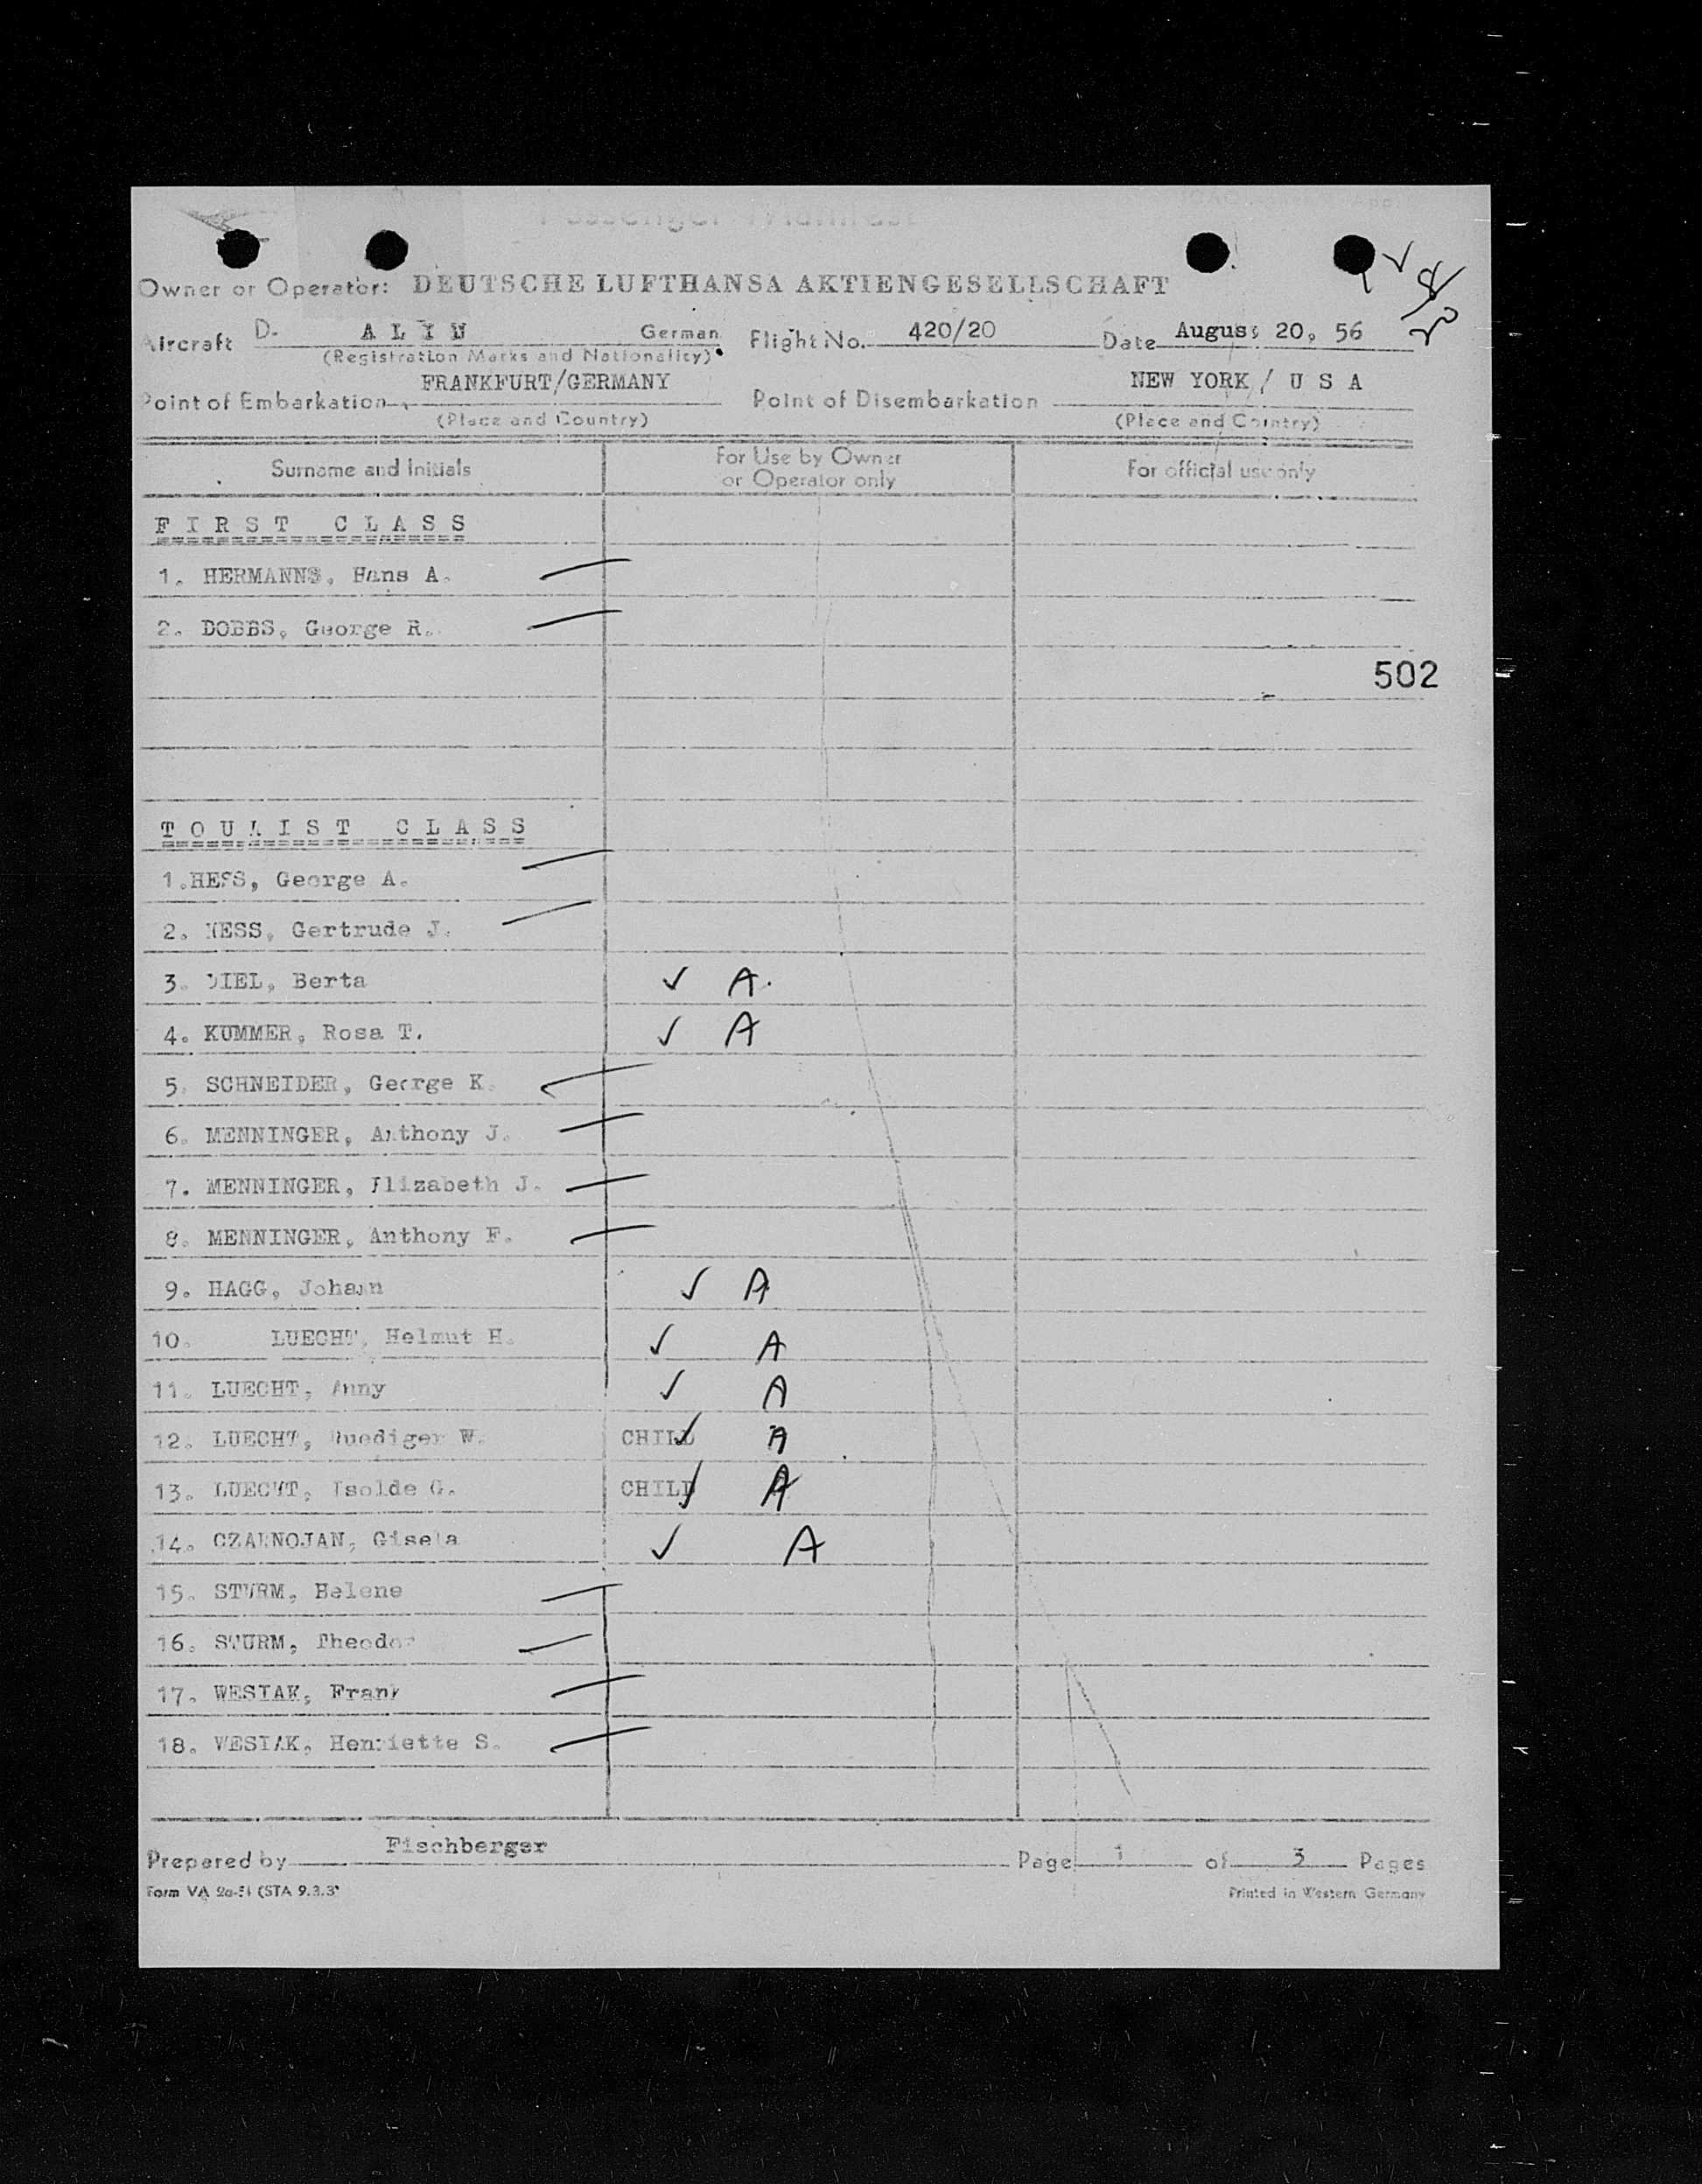 Passenger Manifest
Owner or Operator: DEUTSCHE LUFTHANSA AKTIENGESELLSCHAFT
Aircraft D- A L I N German Flight No. 420/20 Date August 20, 56
(Registration Marks and Nationality)
Point of Embarkation FRANKFURT/GERMANY Point of Disembarkation NEW YORK / U S A
(Place and Country) (Place and Country)
Surname and Initials For Use by Owner or Operator only For official use only
F I R S T C L A S S
1. HERMANNS, Hans A.
2. DOBBS, George R.
502
T O U R I S T C L A S S
1.HESS, George A.
2. HESS, Gertrude J.
3. DIEL, Berta ✓ A.
4. KUMMER, Rosa T. ✓ A
5. SCHNEIDER, George K.
6. MENNINGER, Anthony J.
7. MENNINGER, Elizabeth J.
8. MENNINGER, Anthony F.
9. HAGG, Johann ✓ A
10. LUECHT, Helmut H. ✓ A
11. LUECHT, Anny ✓ A
12. LUECHT, Ruediger W. CHILD ✓ A
13. LUECHT, Isolde G. CHILD ✓ A
14. CZARNOJAN, Gisela ✓ A
15. STURM, Helene
16. STURM, Theodor
17. WESIAK, Frank
18. WESIAK, Henriette S.
Prepared by Fischberger Page 1 of 3 Pages
Form VA 2a-51 (STA 9.3.3) Printed in Western Germany